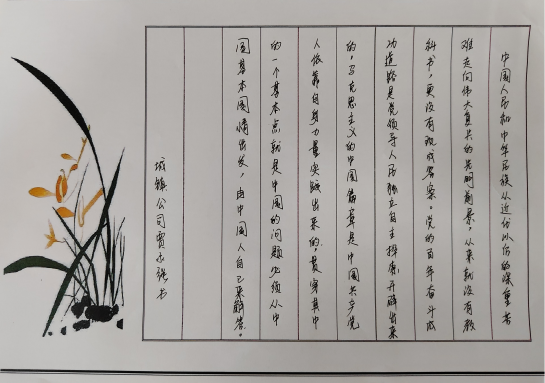 中国人民和中华民族从近代以后的深重苦
难走向伟大复兴的光明前景，从来就没有教
科书，更没有现成答案。党的百年奋斗成
功道路是党领导人民独立自主探索开辟出来
的，马克思主义的中国篇章是中国共产党
人依靠自身力量实践出来的，贯穿其中
的一个基本点就是中国的问题必须从中
国基本国情出发，由中国人自己来解答。
城镇公司贾永强书